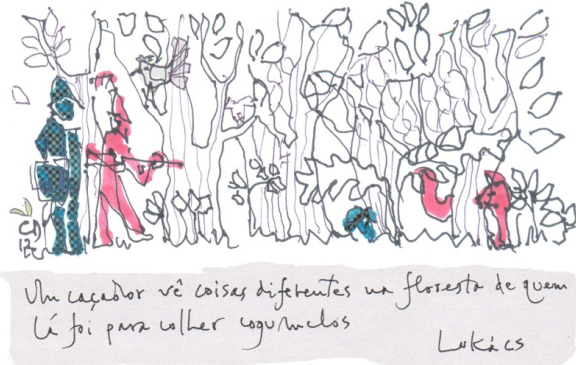 CD
12
Um caçador vê coisas diferentes na floresta de quem
lá foi para colher cogumelos
Lukács